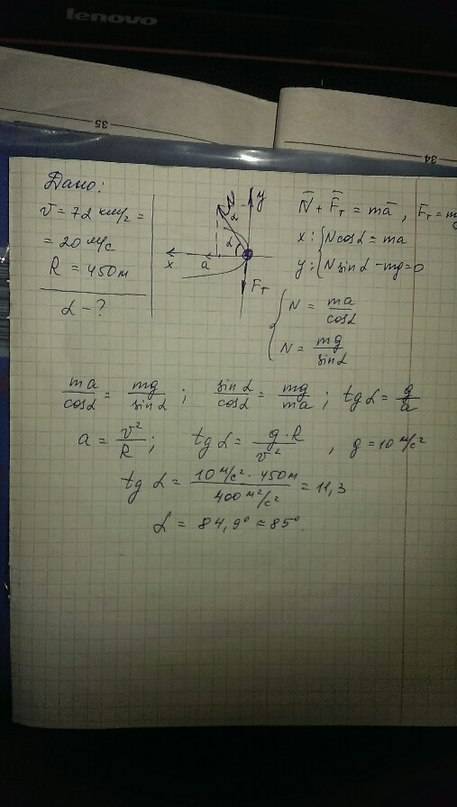 lenovo
35
34
Дано:
v = 72 км/ч =
= 20 м/с
R = 450 м
α - ?
y
N
α
α
x
a
Fт
N̄ + F̄т = mā , F̄т = mg
x: { N cosα = ma
y: { N sinα - mg = 0
{ N = ma/cosα
N = mg/sinα
ma/cosα = mg/sinα ; sinα/cosα = mg/ma ; tg α = g/a
a = v²/R ; tg α = g·R/v² , g = 10 м/с²
tg α = 10 м/с² · 450 м / 400 м²/с² = 11,3
α = 84,9° ≈ 85°